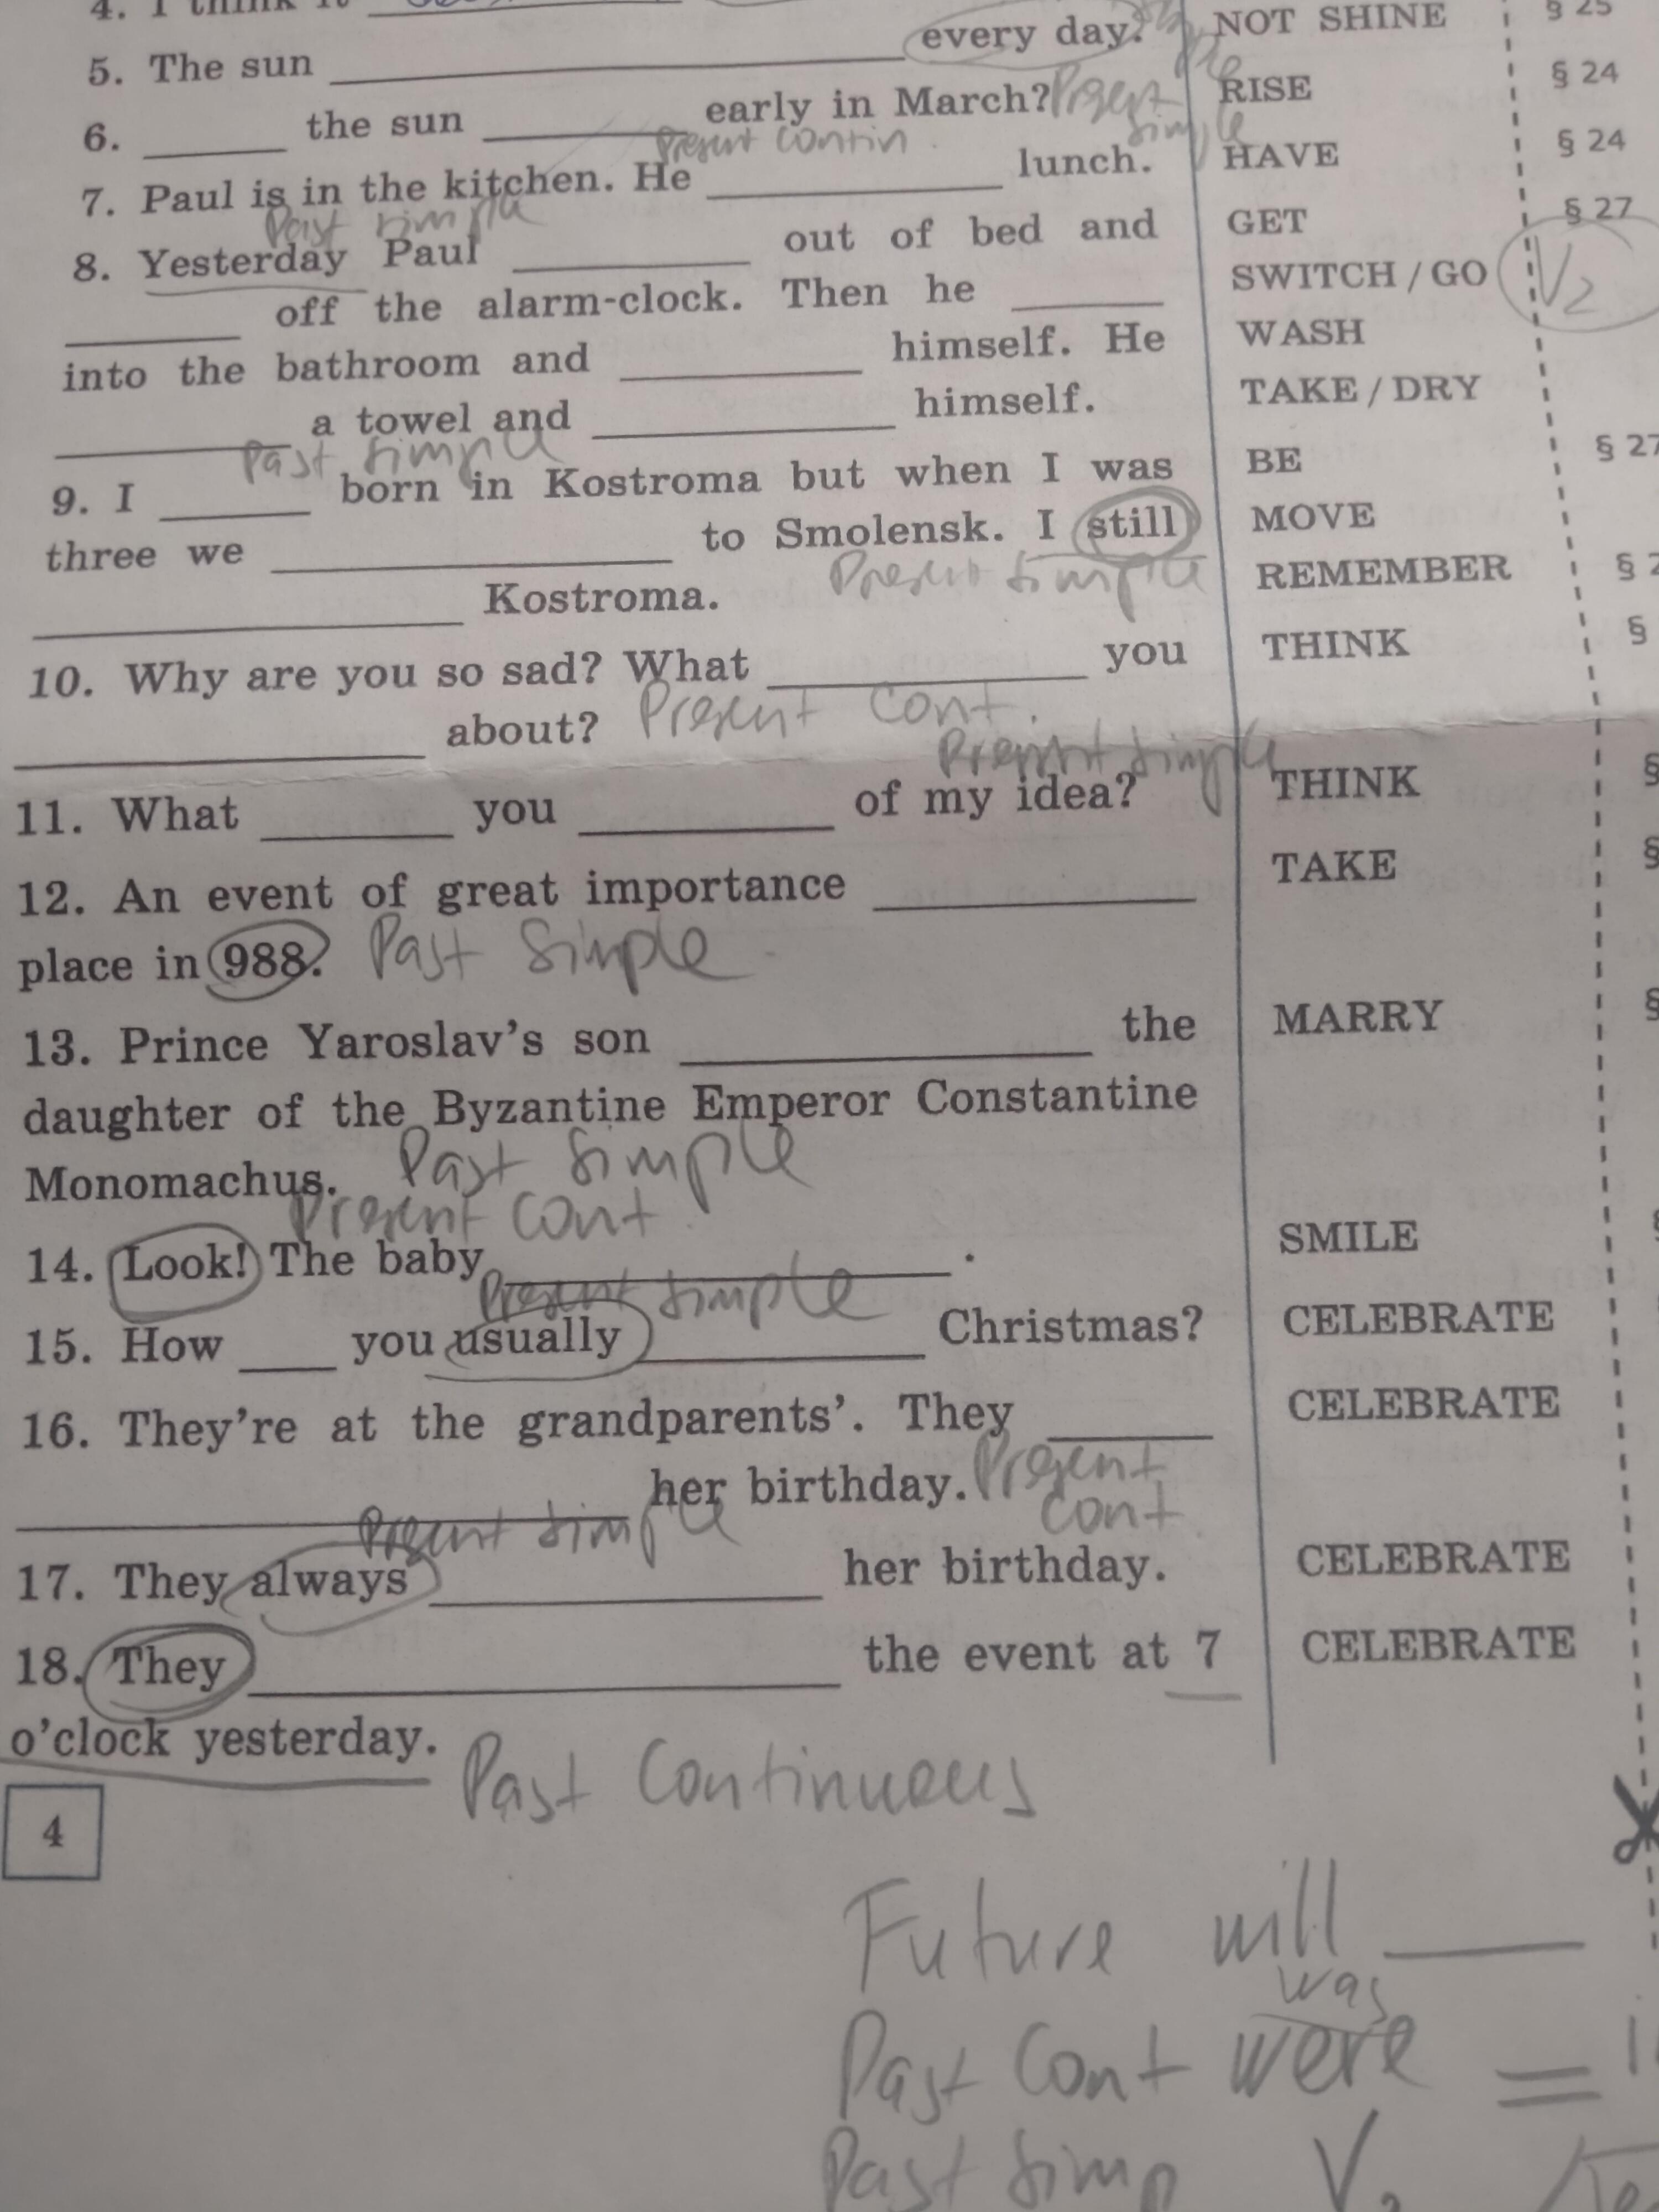 4. I think it
5. The sun ____________ every day. NOT SHINE § 25
6. ______ the sun ________ early in March? Present simple RISE § 24
Present contin.
7. Paul is in the kitchen. He ____________ lunch. HAVE § 24
Past simple
8. Yesterday Paul __________ out of bed and GET § 27
________ off the alarm-clock. Then he ______ SWITCH / GO V2
into the bathroom and __________ himself. He WASH
__________ a towel and ____________ himself. TAKE / DRY
Past simple
9. I ______ born in Kostroma but when I was BE § 27
three we ________________ to Smolensk. I still MOVE
Present simple
__________________ Kostroma. REMEMBER
10. Why are you so sad? What ____________ you THINK §
________________ about? Present cont.
Present simple
11. What ________ you __________ of my idea? THINK §
12. An event of great importance ____________ TAKE §
place in 988. Past Simple
13. Prince Yaroslav's son ________________ the MARRY §
daughter of the Byzantine Emperor Constantine
Monomachus. Past simple
Present cont.
14. Look! The baby __________________. SMILE
Present simple
15. How ____ you usually ____________ Christmas? CELEBRATE
16. They're at the grandparents'. They ______ CELEBRATE
________________________ her birthday. Present cont.
Present simple
17. They always ________________ her birthday. CELEBRATE
18. They ________________________ the event at 7 CELEBRATE
o'clock yesterday. Past Continuous
4
Future will ____
was
Past Cont were =
Past Simp V2